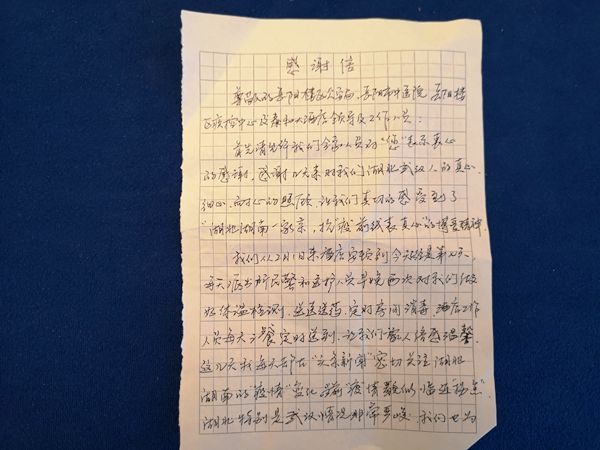 感谢信
尊敬的岳阳楼区公安局、岳阳市中医院、岳阳楼
区疾控中心及泰和大酒店领导及工作人员：
首先请允许我们全家人员对“您”表示衷心
的感谢，感谢几天来对我们湖北武汉人的真心、
细心、耐心的照顾，让我们真切的感受到了
“湖北湖南一家亲，抗疫前线表真心”的博爱精神
我们从2月1日来酒店安顿到今天是第九天
每天派出所民警和医护人员早晚两次对我们做
体温检测，送医送药，定时房间消毒 酒店工作
人员每天三餐定时送到，让我们家人倍感温馨
这几天我每天都在“头条新闻”密切关注湖北
湖南的“疫情”变化，当前“疫情貌似临近拐点”
湖北特别是武汉情况非常严峻，我们也为